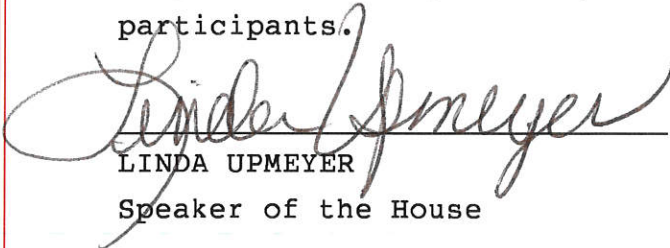 participants.
Linda Upmeyer
LINDA UPMEYER
Speaker of the House